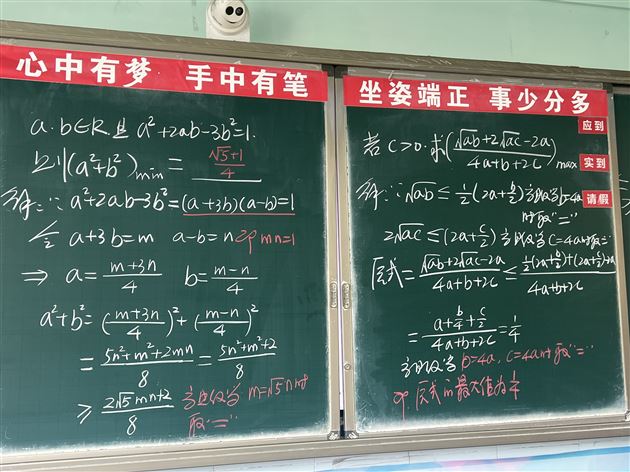 心中有梦 手中有笔
a、b∈R.且 a²+2ab-3b²=1.
则(a²+b²)min = (√5+1)/4
解:∵ a²+2ab-3b²=(a+3b)(a-b)=1
令 a+3b=m a-b=n 即 mn=1
⇒ a=(m+3n)/4 b=(m-n)/4
a²+b²=((m+3n)/4)²+((m-n)/4)²
=(5n²+m²+2mn)/8=(5n²+m²+2)/8
≥(2√5mn+2)/8 当且仅当 m=√5n时
取"="
坐姿端正 事少分多
应到
实到
请假
若 c>0.求((√ab+2√ac-2a)/(4a+b+2c))max
解:∵√ab≤1/2(2a+b/2)当且仅当b=4a
时取"="
2√ac≤(2a+c/2)当且仅当c=4a时取"="
原式=(√ab+2√ac-2a)/(4a+b+2c)≤(1/2(2a+b/2)+(2a+c/2)-2a)/(4a+b+2c)
=(a+b/4+c/2)/(4a+b+2c)=1/4
当且仅当 b=4a, c=4a时取"="
原式的最大值为1/4